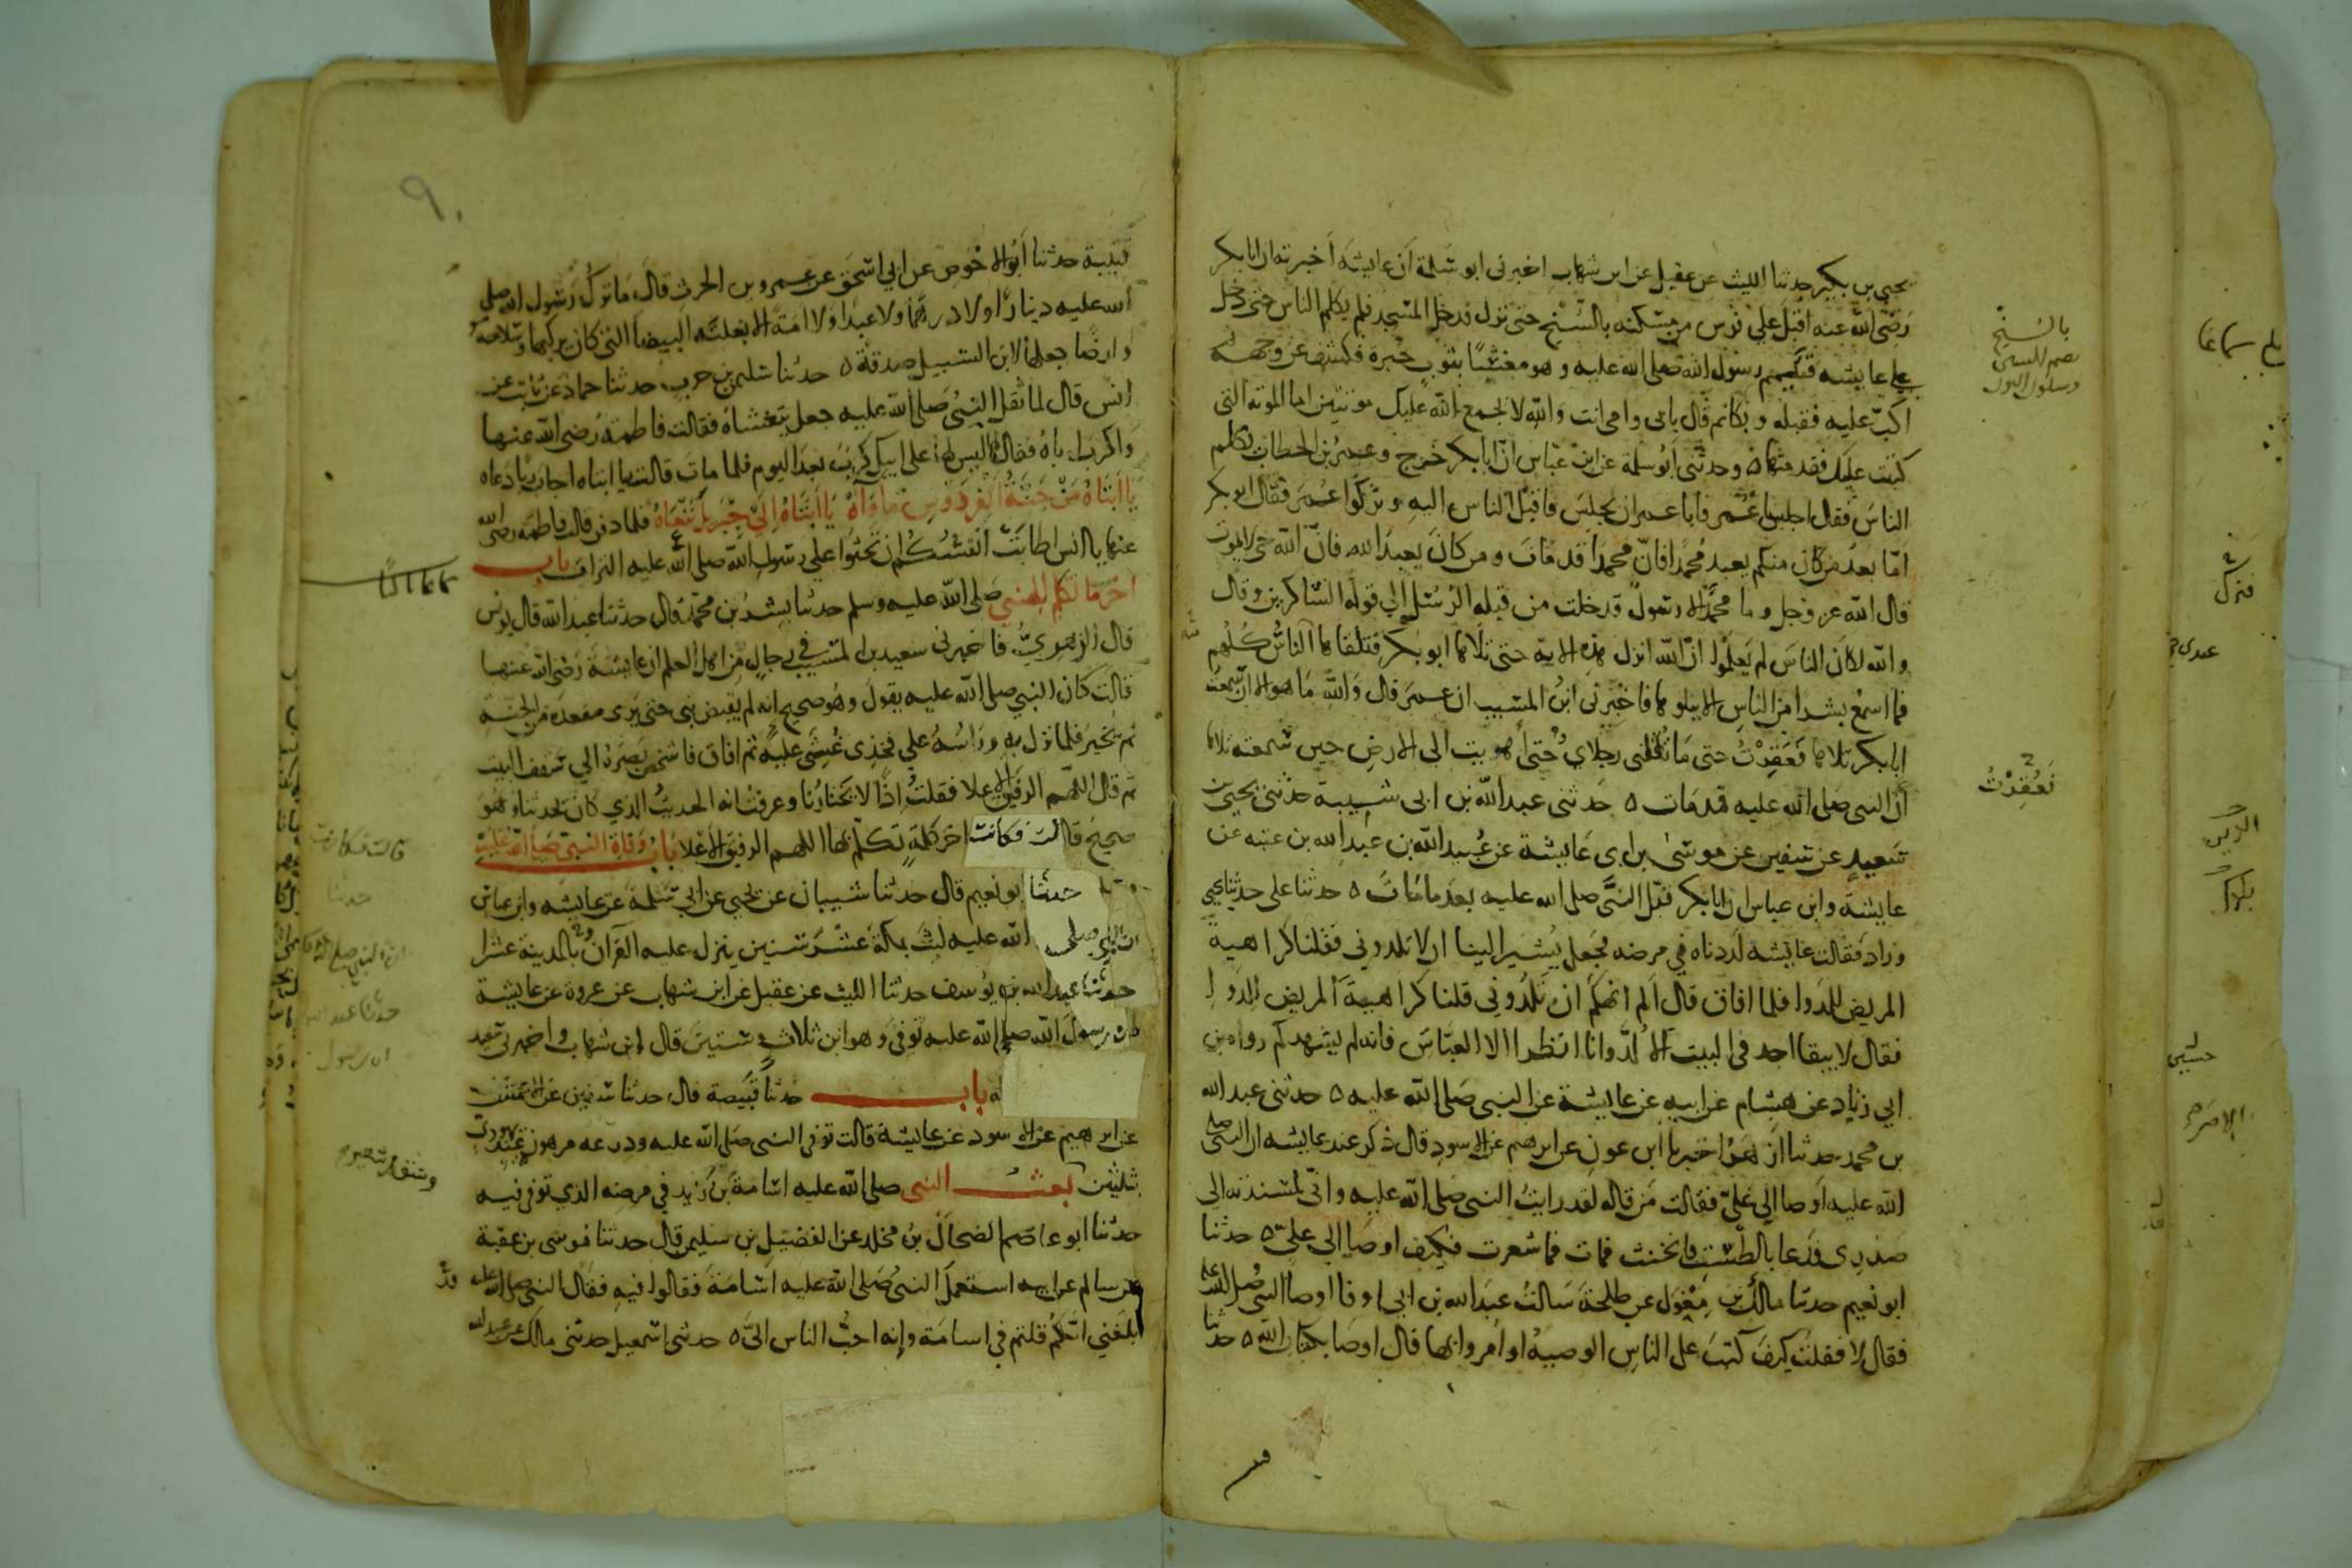 يحيى بن بكير حدثنا الليث عن عقيل عن ابن شهاب اخبرنى ابو سلمة ان عايشة اخبرته ان ابا بكر
رضى الله عنه اقبل على فرس من مسكنه بالسنح حتى نزل فدخل المسجد فلم يكلم الناس حتى دخل
على عايشه فتيمم رسول الله صلى الله عليه وهو مغشيا بثوب حبرة فكشف عن وجهه ثم
اكب عليه فقبله وبكا ثم قال بابى وامى انت والله لا يجمع الله عليك موتتين اما الموتة التى
كتبت عليك فقد متها ه وحدثنى ابو سلمة عن ابن عباس ان ابا بكر خرج وعمر بن الخطاب يكلم
الناس فقال اجلس يا عمر فابا عمر ان يجلس فاقبل الناس اليه وتركوا عمر فقال ابو بكر
اما بعد من كان منكم يعبد محمدا فان محمدا قد مات ومن كان يعبد الله فان الله حى لا يموت
قال الله عز وجل وما محمد الا رسول قد خلت من قبله الرسل الي قوله الشاكرين وقال
والله لكان الناس لم يعلموا ان الله انزل هذه الاية حتى تلاها ابو بكر فتلقاها الناس كلهم
فما اسمع بشرا من الناس الا يتلوها فاخبرنى ابن المسيب ان عمر قال والله ما هو الا ان سمعت
ابا بكر تلاها فعقرت حتى ما تقلنى رجلاي وحتى أهويت الى الارض حين سمعته تلاها
أن النبى صلى الله عليه قد مات ه حدثنى عبد الله بن ابى شيبة حدثنى يحيى بن
سعيد عن سفين عن موسى بن ابى عايشة عن عبيد الله بن عبد الله بن عتبه عن
عايشة وابن عباس ان ابا بكر قبل النبي صلى الله عليه بعد ما مات ه حدثنا على حدثنا يحيى
وزاد فقالت عايشه لددناه في مرضه فجعل يشير الينا ان لا تلدوني فقلنا كراهية
المريض للدوا فلما افاق قال الم انهكم ان تلدوني قلنا كراهية المريض للدوا
فقال لا يبقا احد فى البيت الا لد وانا انظر الا العباس فانه لم يشهدكم رواه بن
ابي زناد عن هشام عن ابيه عن عايشة عن النبى صلى الله عليه ه حدثنى عبد الله
بن محمد حدثنا ازهر اخبرنا ابن عون عن ابرهيم عن الاسود قال ذكر عند عايشه ان النبى صلى
الله عليه اوصا الي علي فقالت من قاله لقد رايت النبى صلى الله عليه وانى لمسندته الى
صدرى فدعا بالطست فانخنث فمات فما شعرت فكيف اوصا الى على ه حدثنا
ابو نعيم حدثنا مالك بن مغول عن طلحة سالت عبد الله بن ابي اوفا اوصا النبى صلى الله عليه
فقال لا فقلت كيف كتب على الناس الوصية او امروا بها قال اوصا بكتاب الله ه حدثنا
بالسنح
بضم السين
وسكون النون
فعقرت
قتيبة حدثنا أبو الاحوص عن ابي اسحق عن عمرو بن الحرث قال ما ترك رسول الله صلى
الله عليه دينارا ولا درهما ولا عبدا ولا امة الا بغلته البيضا التى كان يركبها وسلاحه
وارضا جعلها لابن السبيل صدقة ه حدثنا سليمن بن حرب حدثنا حماد عن ثابت عن
انس قال لما ثقل النبى صلى الله عليه جعل يتغشاه فقالت فاطمة رضى الله عنها
واكرب اباه فقال لها ليس على ابيك كرب بعد اليوم فلما مات قالت يا ابتاه اجاب ربا دعاه
يا ابتاه من جنة الفردوس مأواه يا ابتاه الى جبريل ننعاه فلما دفن قالت فاطمه رضى الله
عنها يا انس اطابت انفسكم ان تحثوا على رسول الله صلى الله عليه التراب باب
اخر ما تكلم النبي صلى الله عليه وسلم حدثنا بشر بن محمد قال حدثنا عبد الله قال يونس
قال الزهري فاخبرنى سعيد بن المسيب في رجال من اهل العلم ان عايشة رضى الله عنها
قالت كان النبي صلى الله عليه يقول وهو صحيح انه لم يقبض نبى حتى يرى مقعده من الجنة
ثم يخير فلما نزل به وراسه على فخذى غشي عليه ثم افاق فاشخص بصره الي سقف البيت
ثم قال اللهم الرفيق الاعلا فقلت إذا لا يختارنا وعرفت انه الحديث الذي كان يحدثنا وهو
صحيح قالت فكانت اخر كلمة تكلم بها اللهم الرفيق الاعلا باب وفاة النبى صلى الله عليه
حدثنا ابو نعيم قال حدثنا شيبان عن يحيى عن ابي سلمة عن عايشه وابن عباس
ان النبي صلى الله عليه لبث بمكة عشر سنين ينزل عليه القرآن وبالمدينة عشرا
حدثنا عبد الله بن يوسف حدثنا الليث عن عقيل عن ابن شهاب عن عروة عن عايشة
ان رسول الله صلى الله عليه توفى وهو ابن ثلاث وستين قال ابن شهاب واخبرنى سعيد
باب حدثنا قبيصة قال حدثنا سفين عن الاعمش
عن ابرهيم عن الاسود عن عايشة قالت توفى النبى صلى الله عليه ودرعه مرهونة عند يهودى
بثلثين بعث النبى صلى الله عليه اسامة بن زيد في مرضه الذي توفى فيه
حدثنا ابو عاصم الضحاك بن مخلد عن الفضيل بن سليمن قال حدثنا موسى بن عقبة
عن سالم عن ابيه استعمل النبى صلى الله عليه اسامة فقالوا فيه فقال النبى صلى الله عليه
بلغني انكم قلتم في اسامة وإنه احب الناس الى ه حدثنى اسمعيل حدثنى مالك عن عبد الله
٩٠
قالت فكانت
حدثنا
ان النبي صلى الله
حدثنا عبد الله
ان رسول